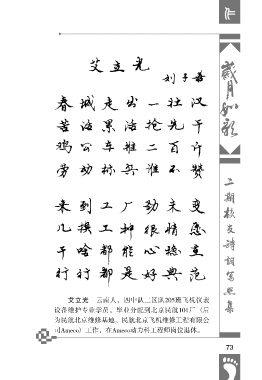 作
岁月如歌
二期校友诗词写照集
艾立光
刘子荔
春城走出一壮汉
苦活累活抢先干
鸡公车推二百斤
劳动标兵谁不赞
来到工厂劲未变
几换工种很情愿
干啥都能心稳直
行行都是好典范
艾立光 云南人，四中队二区队205班飞机仪表
设备维护专业学员。毕业分配到北京民航101厂（后
为民航北京维修基地、民航北京飞机维修工程有限公
司Ameco）工作，在Ameco动力科工程师岗位退休。
73